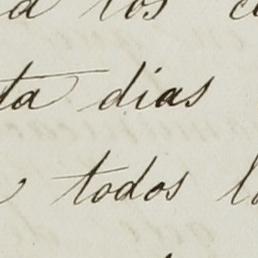 los
ta dias
todos